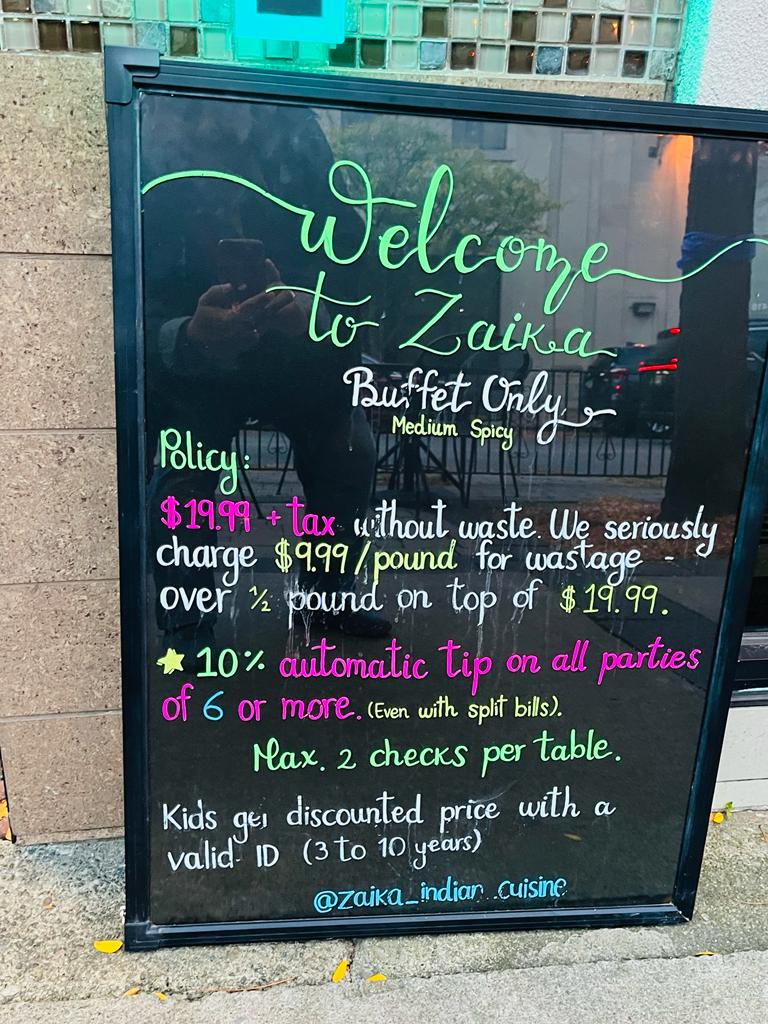 Welcome
to Zaika
Buffet Only
Medium Spicy
Policy:
$19.99 + tax without waste. We seriously
charge $9.99/pound for wastage -
over ½ pound on top of $19.99.
★ 10% automatic tip on all parties
of 6 or more. (Even with split bills).
Max. 2 checks per table.
Kids get discounted price with a
valid ID (3 to 10 years)
@zaika_indian_cuisine